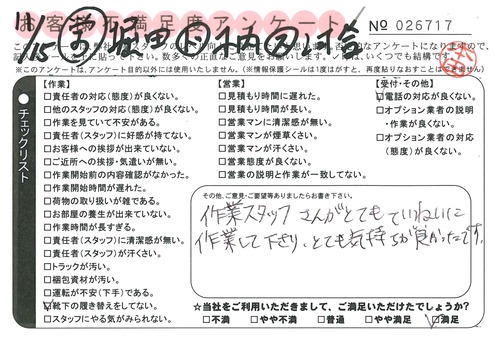 お客様不満足度アンケート
No 026717
11/15
※このアンケートは、アンケート目的以外には使用いたしません。(※情報保護シールは1度はがすと、再度貼りなおすことはできません)
チェックリスト
【作業】
□責任者の対応(態度)が良くない。
□他のスタッフの対応(態度)が良くない。
□作業を見ていて不安がある。
□責任者(スタッフ)に好感が持てない。
□お客様への挨拶が出来ていない。
□ご近所への挨拶・気遣いが無い。
□作業開始前の内容確認がなかった。
□作業開始時間が遅れた。
□荷物の取り扱いが雑である。
□お部屋の養生が出来ていない。
□作業時間が長すぎる。
□責任者(スタッフ)に清潔感が無い。
□責任者(スタッフ)が汗くさい。
□トラックが汚い。
□梱包資材が汚い。
□運転が不安(下手)である。
□靴下の履き替えをしてない。
□スタッフにやる気がみられない。
【営業】
□見積もり時間に遅れた。
□見積もり時間が長い。
□営業マンに清潔感が無い。
□営業マンが煙草くさい。
□営業マンが汗くさい。
□営業態度が良くない。
□営業の説明と作業が一致してない。
【受付・その他】
□電話の対応が良くない。
□オプション業者の説明・作業が良くない。
□オプション業者の対応(態度)が良くない。
その他、ご意見・ご要望等ありましたらお書き下さい。
作業スタッフさんがとてもていねいに
作業して下さり、とても気持ちが良かったです。
☆当社をご利用いただきまして、ご満足いただけたでしょうか?
□不満 □やや不満 □普通 □やや満足 □満足